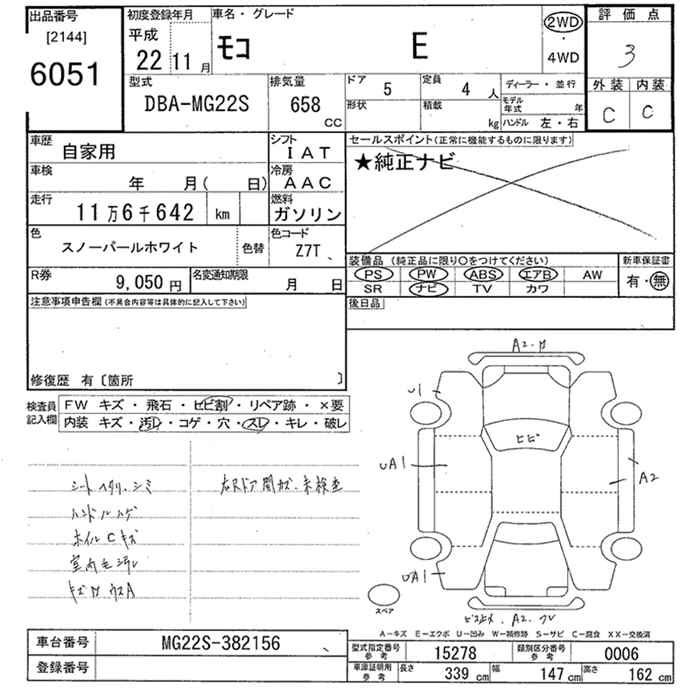 出品番号
[2144]
6051
初度登録年月
平成
22 11 月
車名・グレード
モコ E
2WD
・
4WD
評価点
3
外装 内装
C C
型式
DBA-MG22S
排気量
658 cc
ドア
5
定員
4 人
形状
積載
kg
ディーラー・並行
モデル年式 年
ハンドル 左・右
車歴
自家用
シフト
IAT
車検
年 月( 日)
冷房
AAC
走行
11万6千642 km
燃料
ガソリン
色
スノーパールホワイト
色替
色コード
Z7T
R券
9,050 円
名変通知期限
月 日
セールスポイント(正常に機能するものに限ります)
★純正ナビ
装備品 (純正品に限り○をつけてください)
新車保証書
PS PW ABS エアB AW
SR ナビ TV カワ
有・無
後日品
注意事項申告欄(不具合内容等は具体的に記入して下さい)
修復歴 有〔箇所 〕
検査員記入欄
FW キズ・飛石・ヒビ割・リペア跡・×要
内装 キズ・汚レ・コゲ・穴・スレ・キレ・破レ
シートヘタリ.シミ
ハンドルハゲ
ホイルCキズ
室内毛汚レ
右Rドア開カズ.未検査
U1
UA1
UA1
ヒビ
A2
スペア
A-キズ E-エクボ U-凹み W-補修跡 S-サビ C-腐食 XX-交換済
車台番号
MG22S-382156
登録番号
型式指定番号 参考
15278
類別区分番号 参考
0006
車庫証明用 参考
長さ 339 cm 幅 147 cm 高さ 162 cm